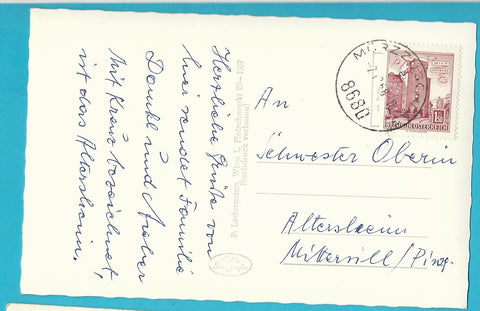 Herzliche Grüße von
hier sendet Familie
Dankl und Atelier
Mit Kreuz bezeichnet
ist das Altersheim.
P. Ledermann, Wien, I.,
Nachdruck verboten!
MÜRZZ
8680
REPUBLIK ÖSTERREICH
An
Schwester Oberin
Altersheim
Mittersill / Pinzg.